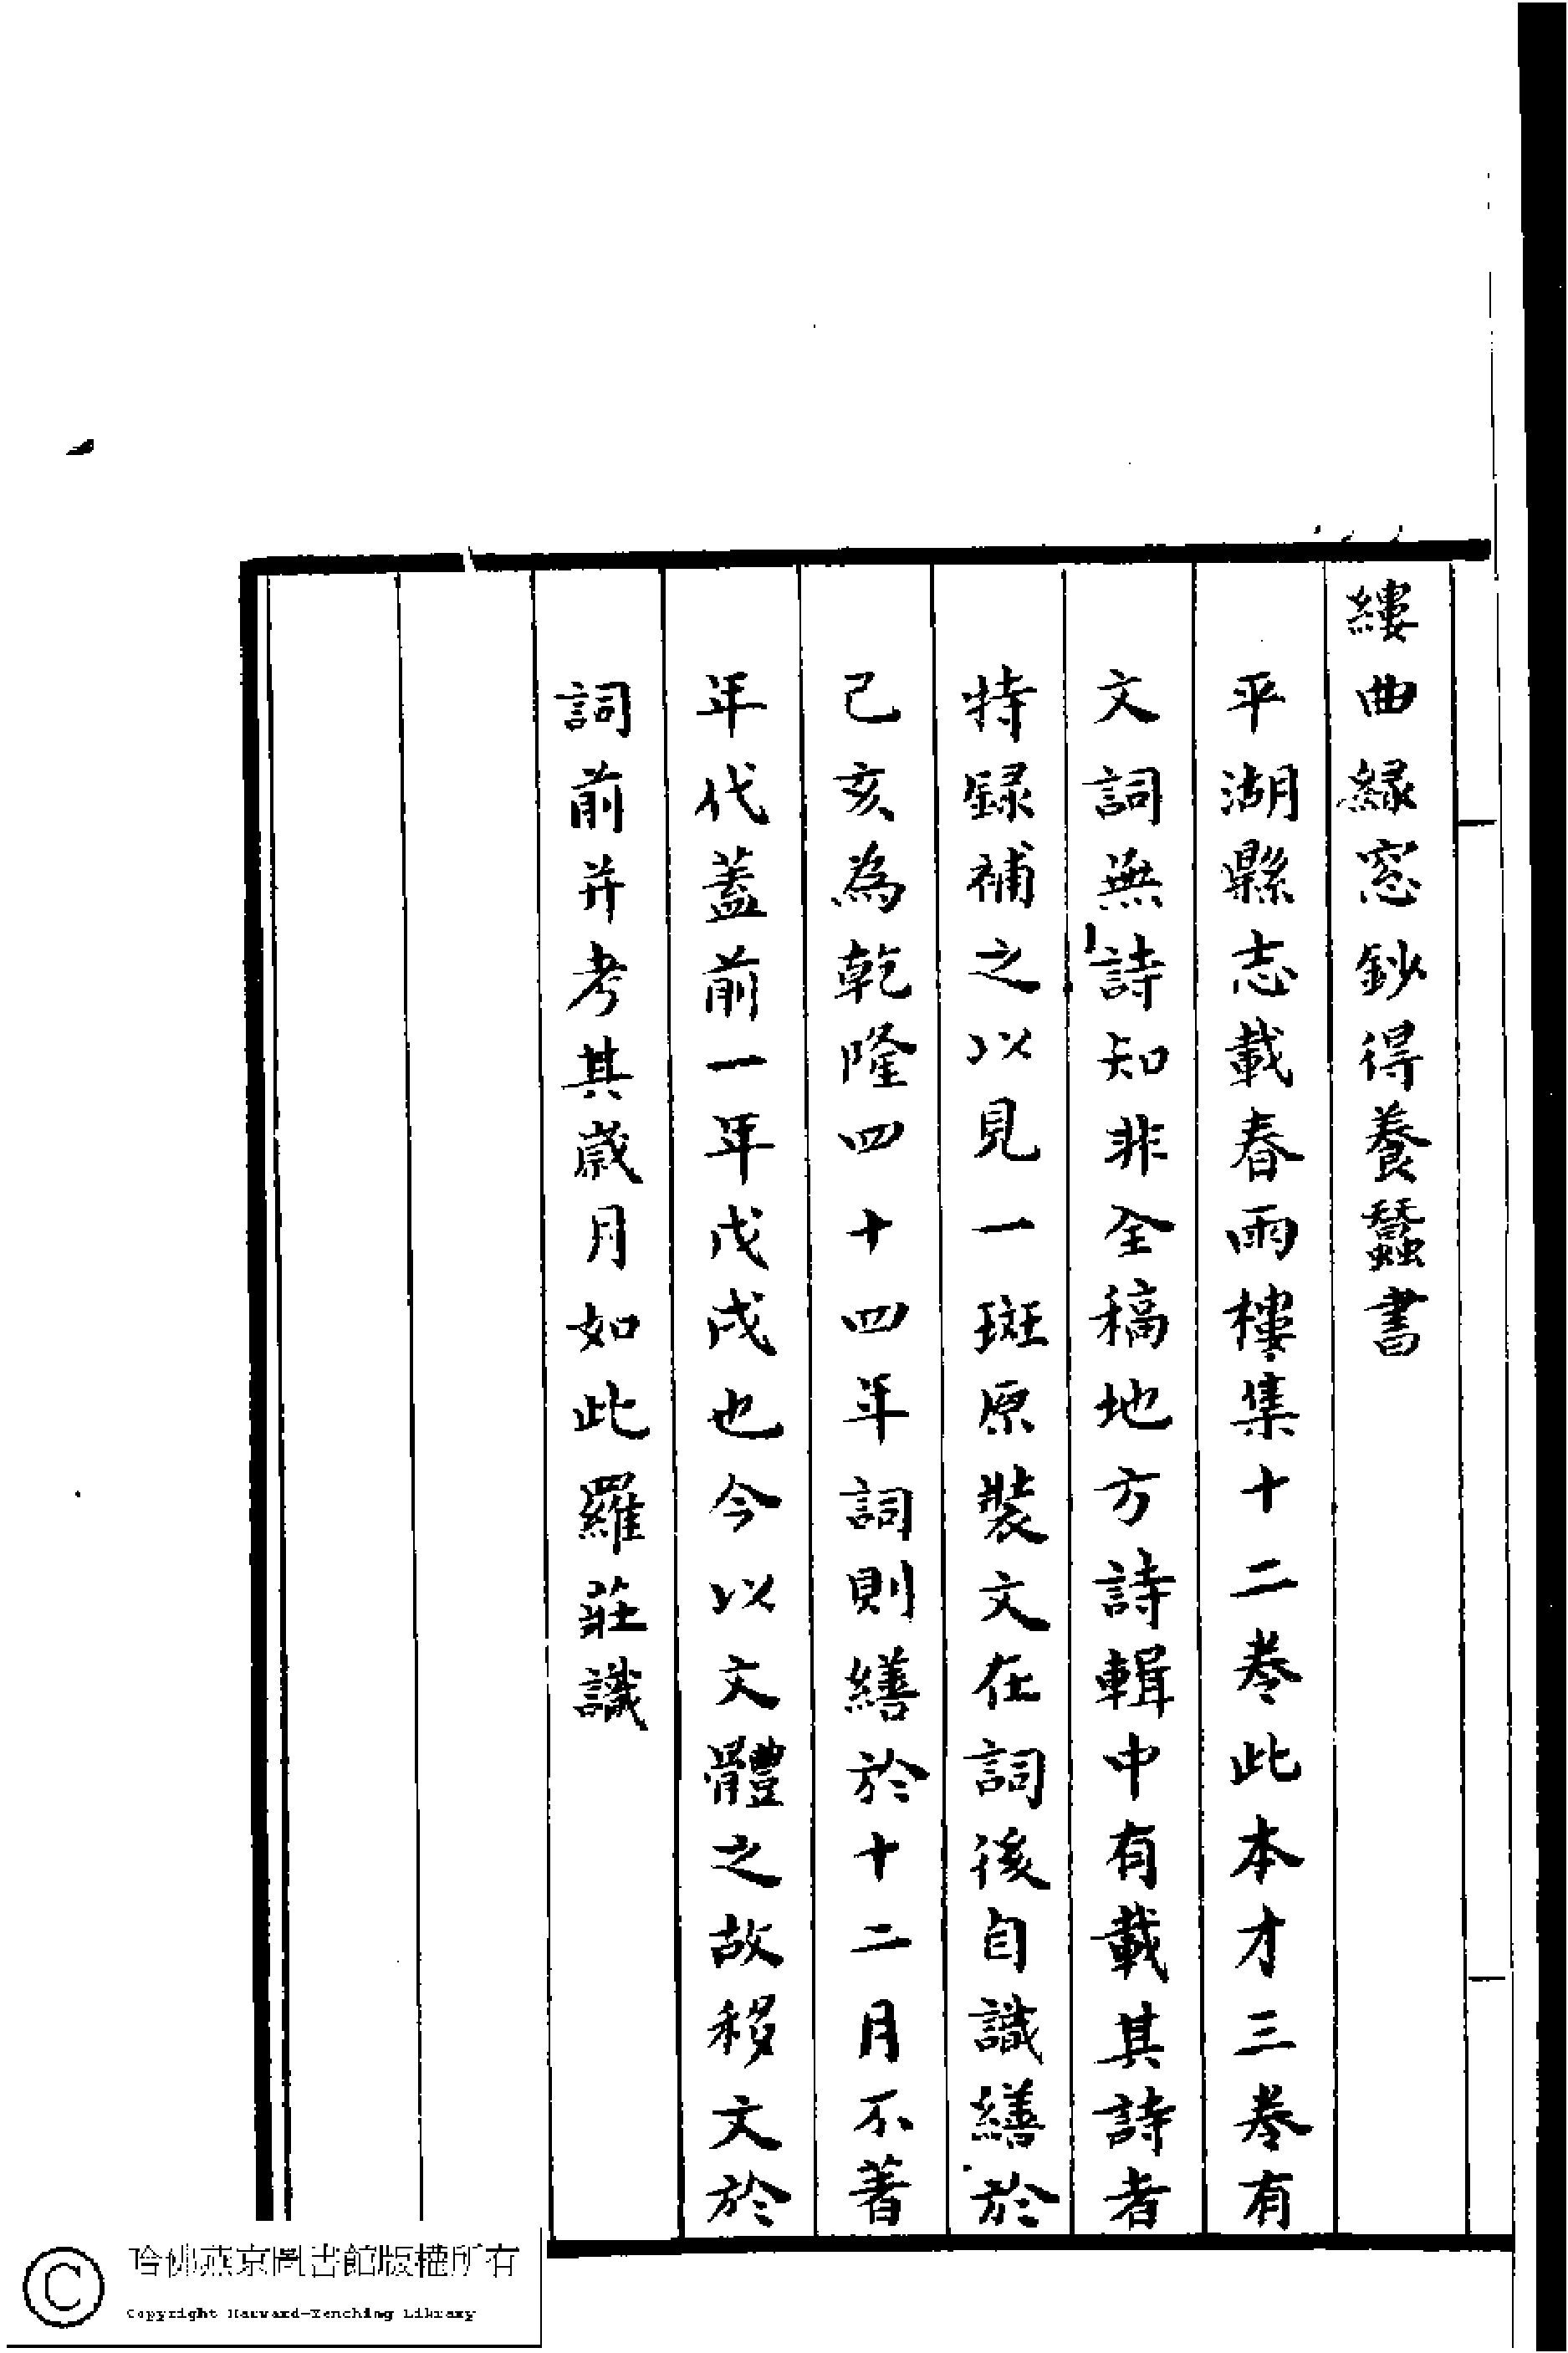 縷曲緑窓鈔得養蠶書
平湖縣志載春雨樓集十二卷此本才三卷有
文詞無詩知非全稿地方詩輯中有載其詩者
特録補之以見一斑原裝文在詞後自識繕於
己亥為乾隆四十四年詞則繕於十二月不著
年代蓋前一年戊戌也今以文體之故移文於
詞前并考其歲月如此羅莊識
哈佛燕京圖書館版權所有
Copyright Harvard-Yenching Library